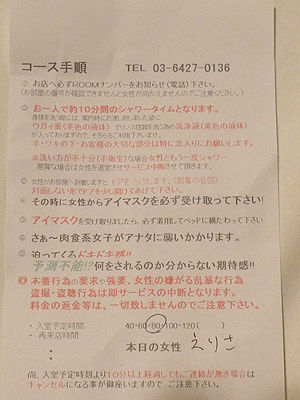 コース手順 TEL 03-6427-0136
① お店へ必ずROOMナンバーをお知らせ(電話)下さい。
(お部屋の番号が確認できませんと女性が向かえませんのでご注意ください。)
② お一人で約10分間のシャワータイムとなります。
身体を洗う際には、案内時にお渡し致しました袋に
ウガイ薬(茶色の液体) グリンス(性器を洗う為の洗浄液(黄色の液体)
が入っておりますので、そちらをご利用下さいませ。
手・ワキの下・お客様の大切な部分は特に念入りにお願いします。
※洗い方が不十分(不衛生)な場合女性ともう一度シャワー。
悪質な場合は女性を退室させサービス中断させて頂きます。
② 女性がお部屋へ到着しますと、ドアをノックします。(到着の合図)
対面しない形でドアを少し開けてあげて下さい。
※ その時に女性からアイマスクを必ず受け取って下さい!
③ アイマスクを受け取りましたら、必ず着用してベッドに横たわって下さい。
④ さぁ～肉食系女子がアナタに襲いかかります。
⑤ 迫ってくるドキドキ感!!
予測不能!?何をされるのか分からない期待感!!
◎本番行為の要求や強要、女性の嫌がる乱暴な行為
盗撮・盗聴行為は即サービスの中断となります。
料金の返金等は、一切致しませんのでご注意下さい。
・入室予定時間 40・60・80・100・120( )
・再来店時間
本日の女性 えりさ
尚、入室予定時刻より10分以上経過してもご連絡が無き場合は
キャンセルになる事が御座いますので、ご注意下さい。